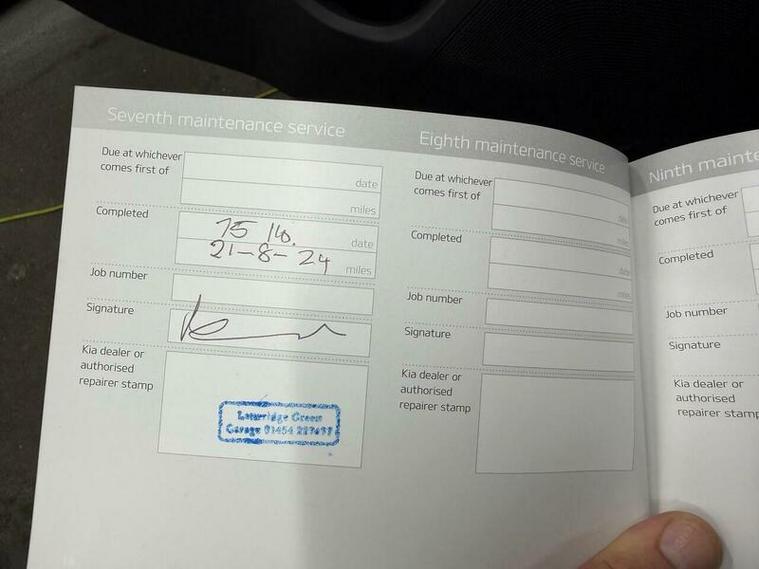 Seventh maintenance service
Due at whichever
comes first of
date
miles
Completed
date
21-8-24
miles
Job number
Signature
Kia dealer or
authorised
repairer stamp
Green
Garage 01454
Eighth maintenance service
Due at whichever
comes first of
date
miles
Completed
date
miles
Job number
Signature
Kia dealer or
authorised
repairer stamp
Ninth mainte
Due at whichever
comes first of
Completed
Job number
Signature
Kia dealer or
authorised
repairer stamp